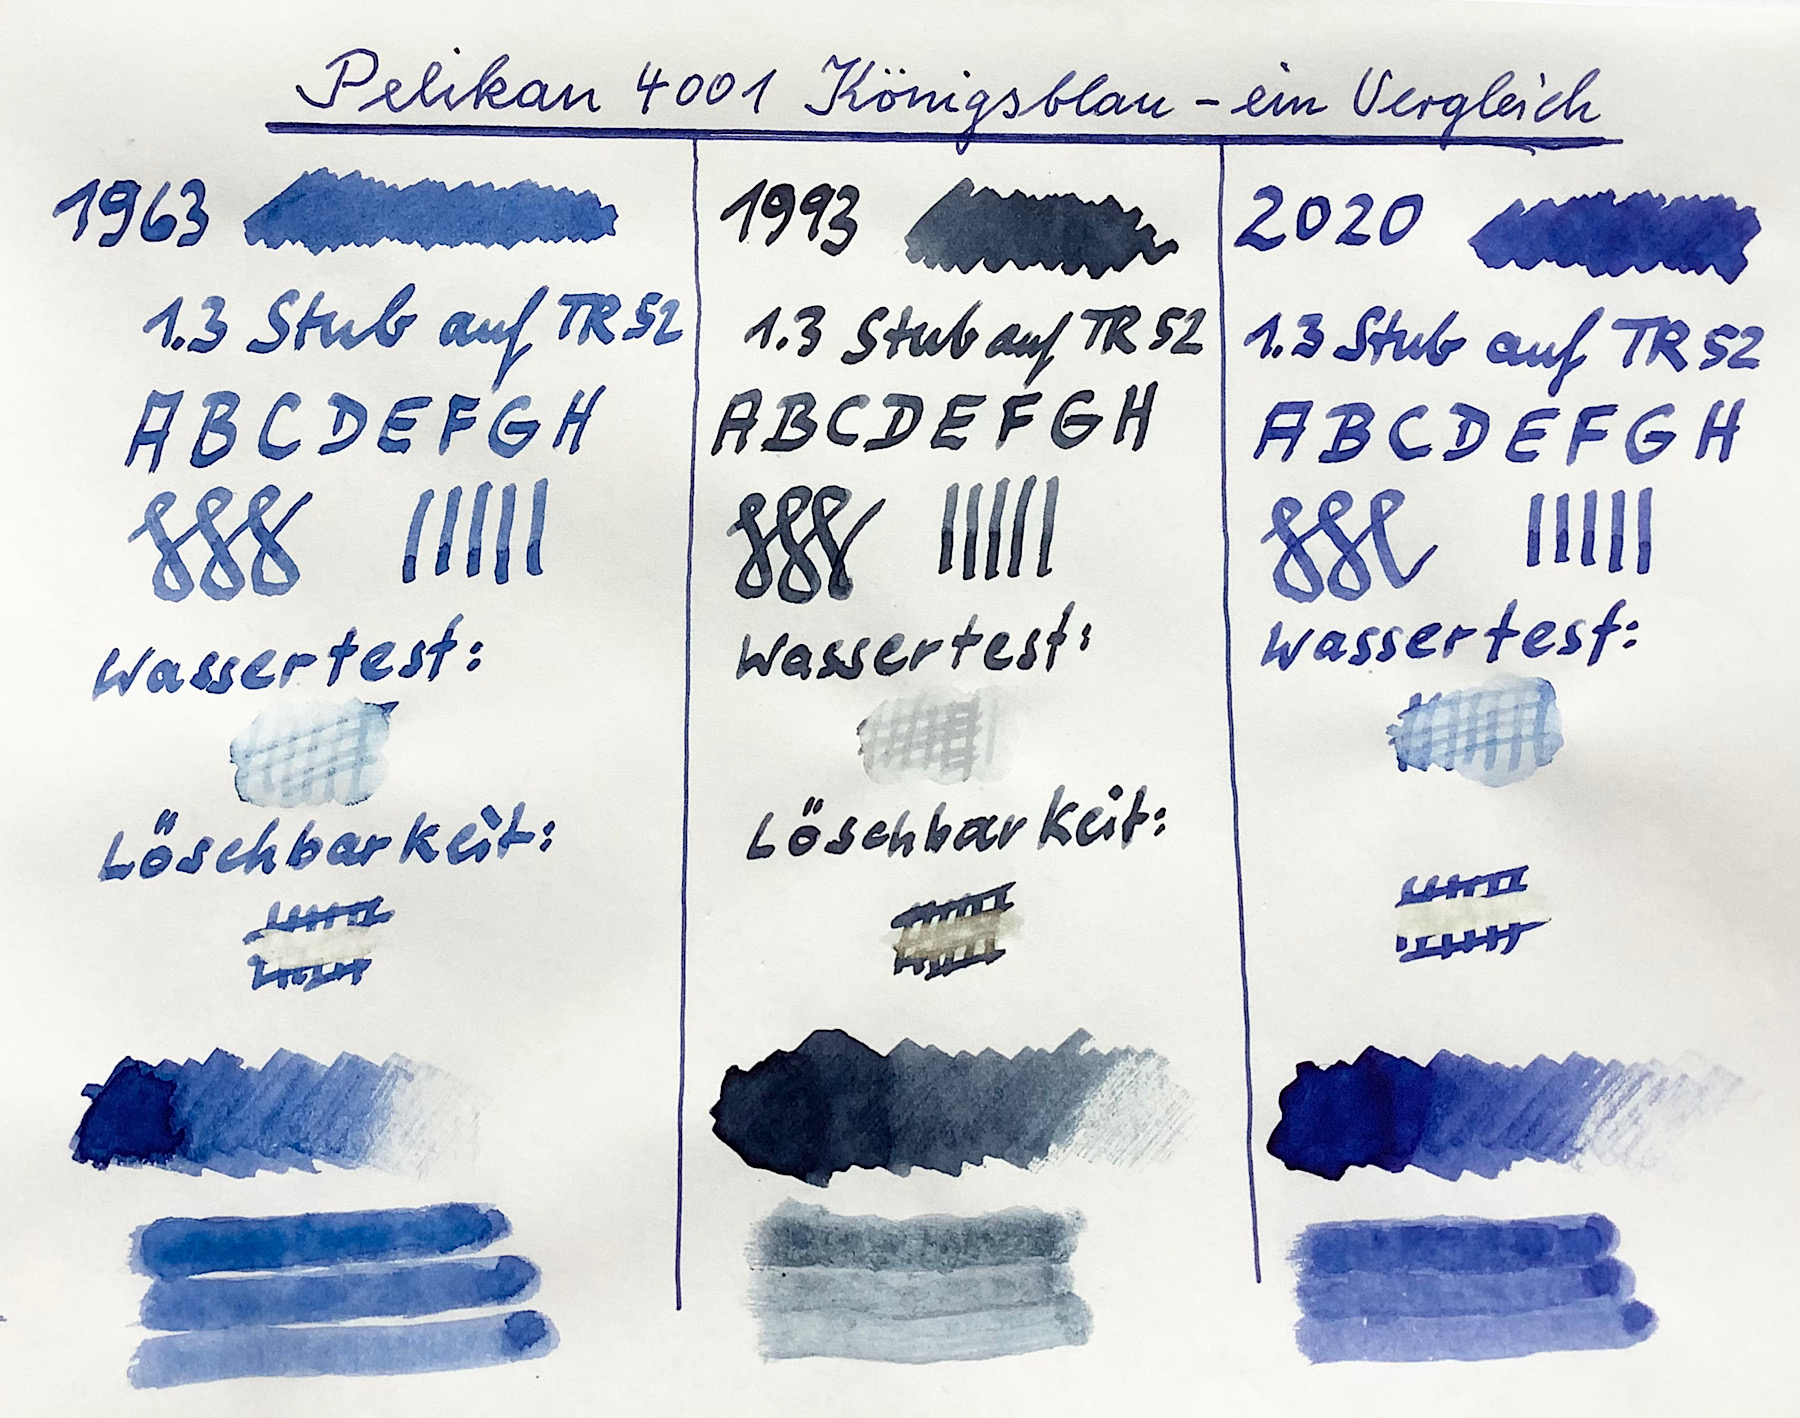 Pelikan 4001 Königsblau – ein Vergleich
1963
1.3 Stub auf TR 52
A B C D E F G H
Wassertest:
Löschbarkeit:
1993
1.3 Stub auf TR 52
A B C D E F G H
Wassertest:
Löschbarkeit:
2020
1.3 Stub auf TR 52
A B C D E F G H
Wassertest: